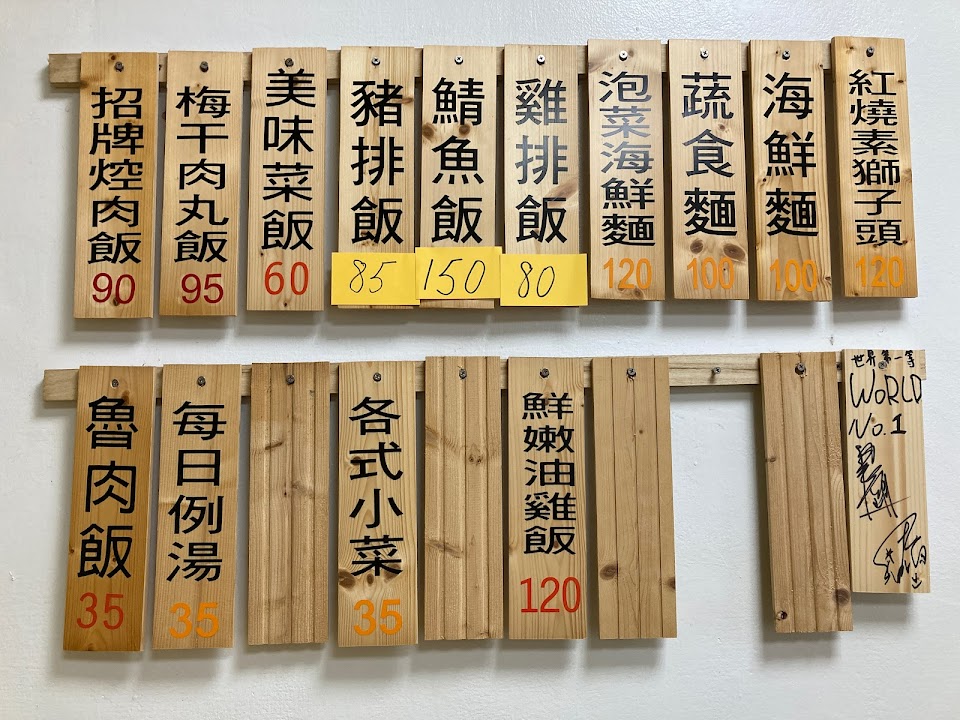 招牌焢肉飯
90
梅干肉丸飯
95
美味菜飯
60
豬排飯
85
鯖魚飯
150
雞排飯
80
泡菜海鮮麵
120
蔬食麵
100
海鮮麵
100
紅燒素獅子頭
120
魯肉飯
35
每日例湯
35
各式小菜
35
鮮嫩油雞飯
120
世界第一等
WORLD
No.1